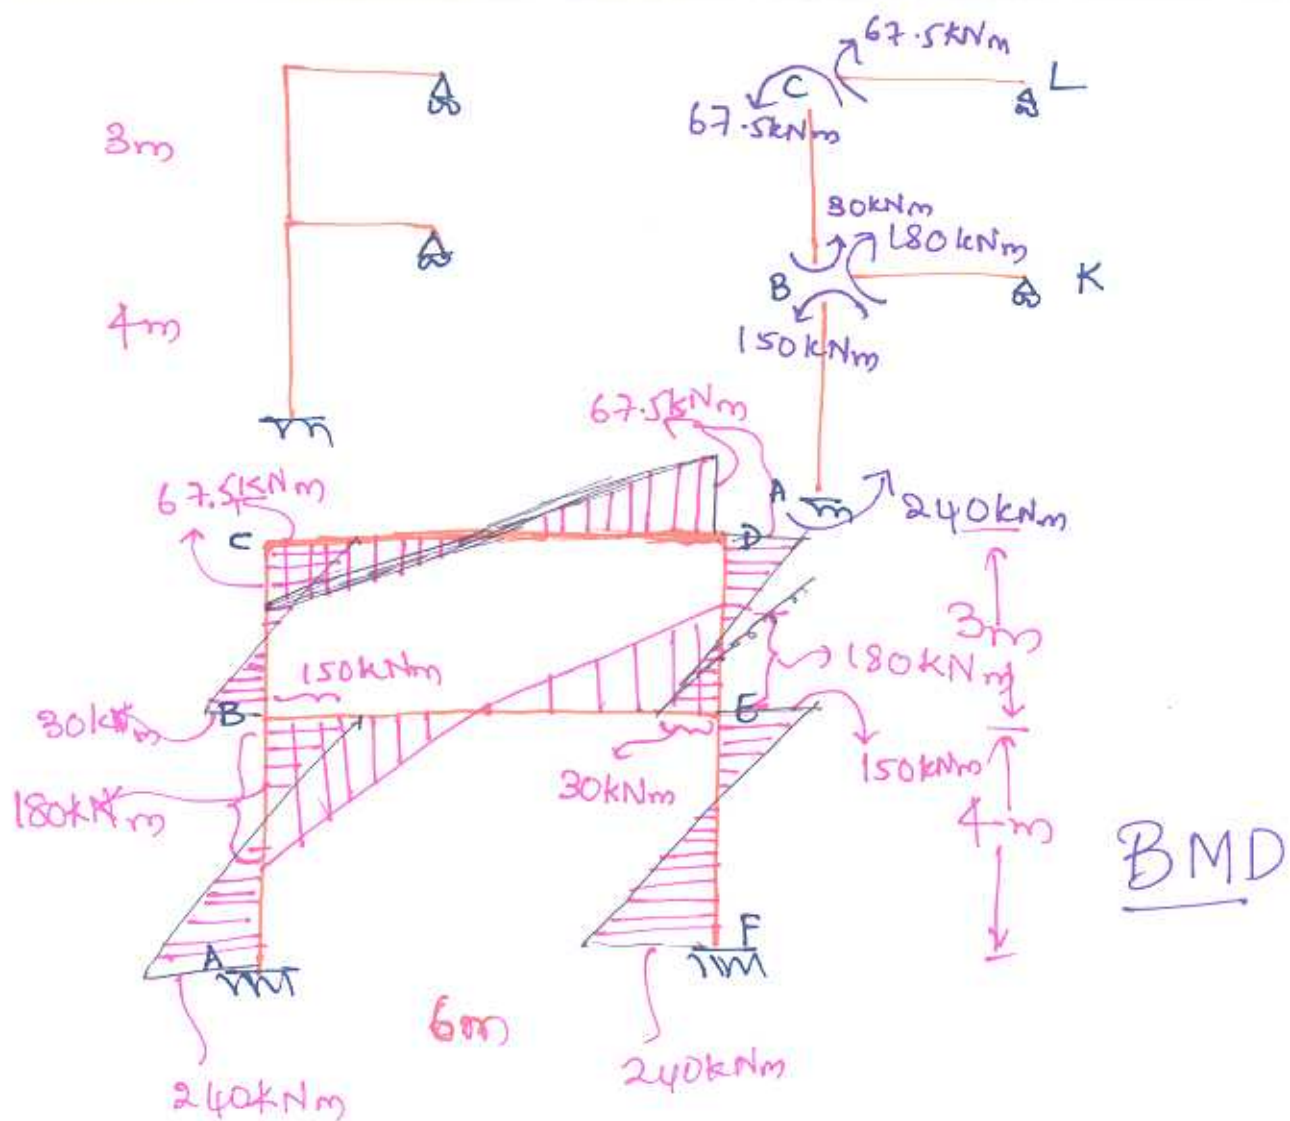 3m
4m
67.5kNm
C
L
67.5kNm
30kNm
180kNm
B
K
150kNm
67.5kNm
A
240kNm
67.5kNm
C
D
3m
150kNm
180kNm
30kNm
B
E
180kNm
30kNm
150kNm
4m
BMD
A
F
6m
240kNm
240kNm